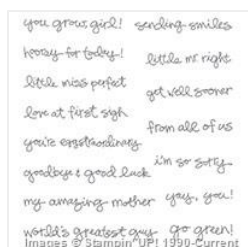 you grow, girl!
sending smiles
hooray for today!
little mr. right
little miss perfect
get well sooner
love at first sigh
from all of us
you're eggstraordinary
i'm so sorry
goodbye & good luck
yay, you!
my amazing mother
go green!
world's greatest guy
Images © Stampin' UP! 1990-Current